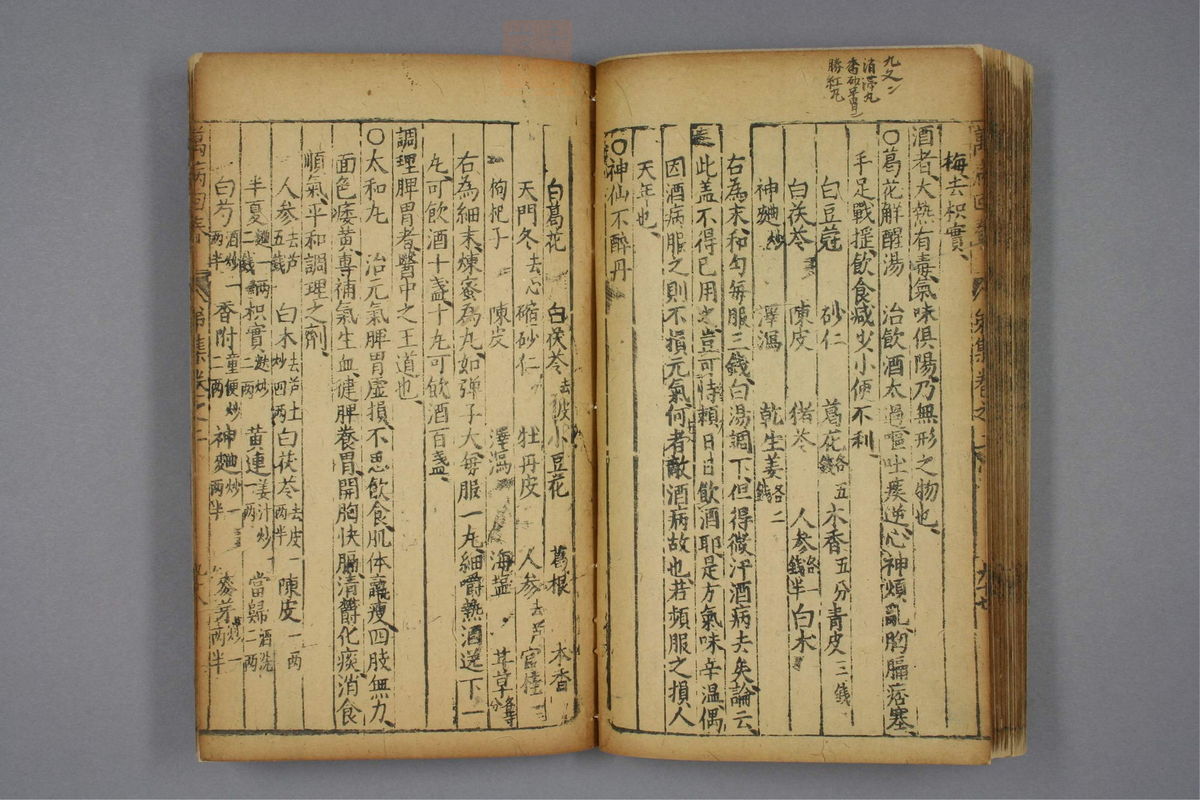 九文
消滯丸
香砂平胃
勝紅丸
梅去枳實
酒者大熱有毒氣味俱陽乃無形之物也
〇葛花解醒湯 治飲酒太過嘔吐痰逆心神煩亂胸膈痞塞
手足戰揺飲食减少小便不利
白豆蔲 砂仁 葛花各五錢 木香五分 青皮三錢
白茯苓 陳皮 猪苓 人参各一錢半 白术
神麯炒 澤瀉 乾生姜各二錢
右為末和匀每服三錢白湯調下但得微汗酒病去矣論云
此盖不得已用之豈可恃頼日日飲酒耶是方氣味辛温偶
因酒病服之則不損元氣何者敵酒病故也若頻服之損人
天年也
〇神仙不醉丹
白葛花 白茯苓去皮 小豆花 葛根 木香
天門冬去心 縮砂仁 牡丹皮 人参去芦 官桂
枸杞子 陳皮 澤瀉 海盐 甘草各等分
右為細末煉蜜為丸如弾子大每服一丸細嚼熱酒送下一
丸可飲酒十盞十丸可飲酒百盞
調理脾胃者醫中之王道也
〇太和丸 治元氣脾胃虚損不思飲食肌体羸瘦四肢無力
面色痿黃專補氣生血健脾養胃開胸快膈清欝化痰消食
順氣平和調理之劑
人参去芦五錢 白术去芦土炒四兩 白茯苓去皮兩半 陳皮一兩
半夏麵炒二錢 枳實麩炒一兩 黃連姜汁炒一兩 當歸酒洗二兩
白芍酒炒一兩半 香附童便炒二兩 神麯炒一兩半 麥芽炒一兩半
萬病回春